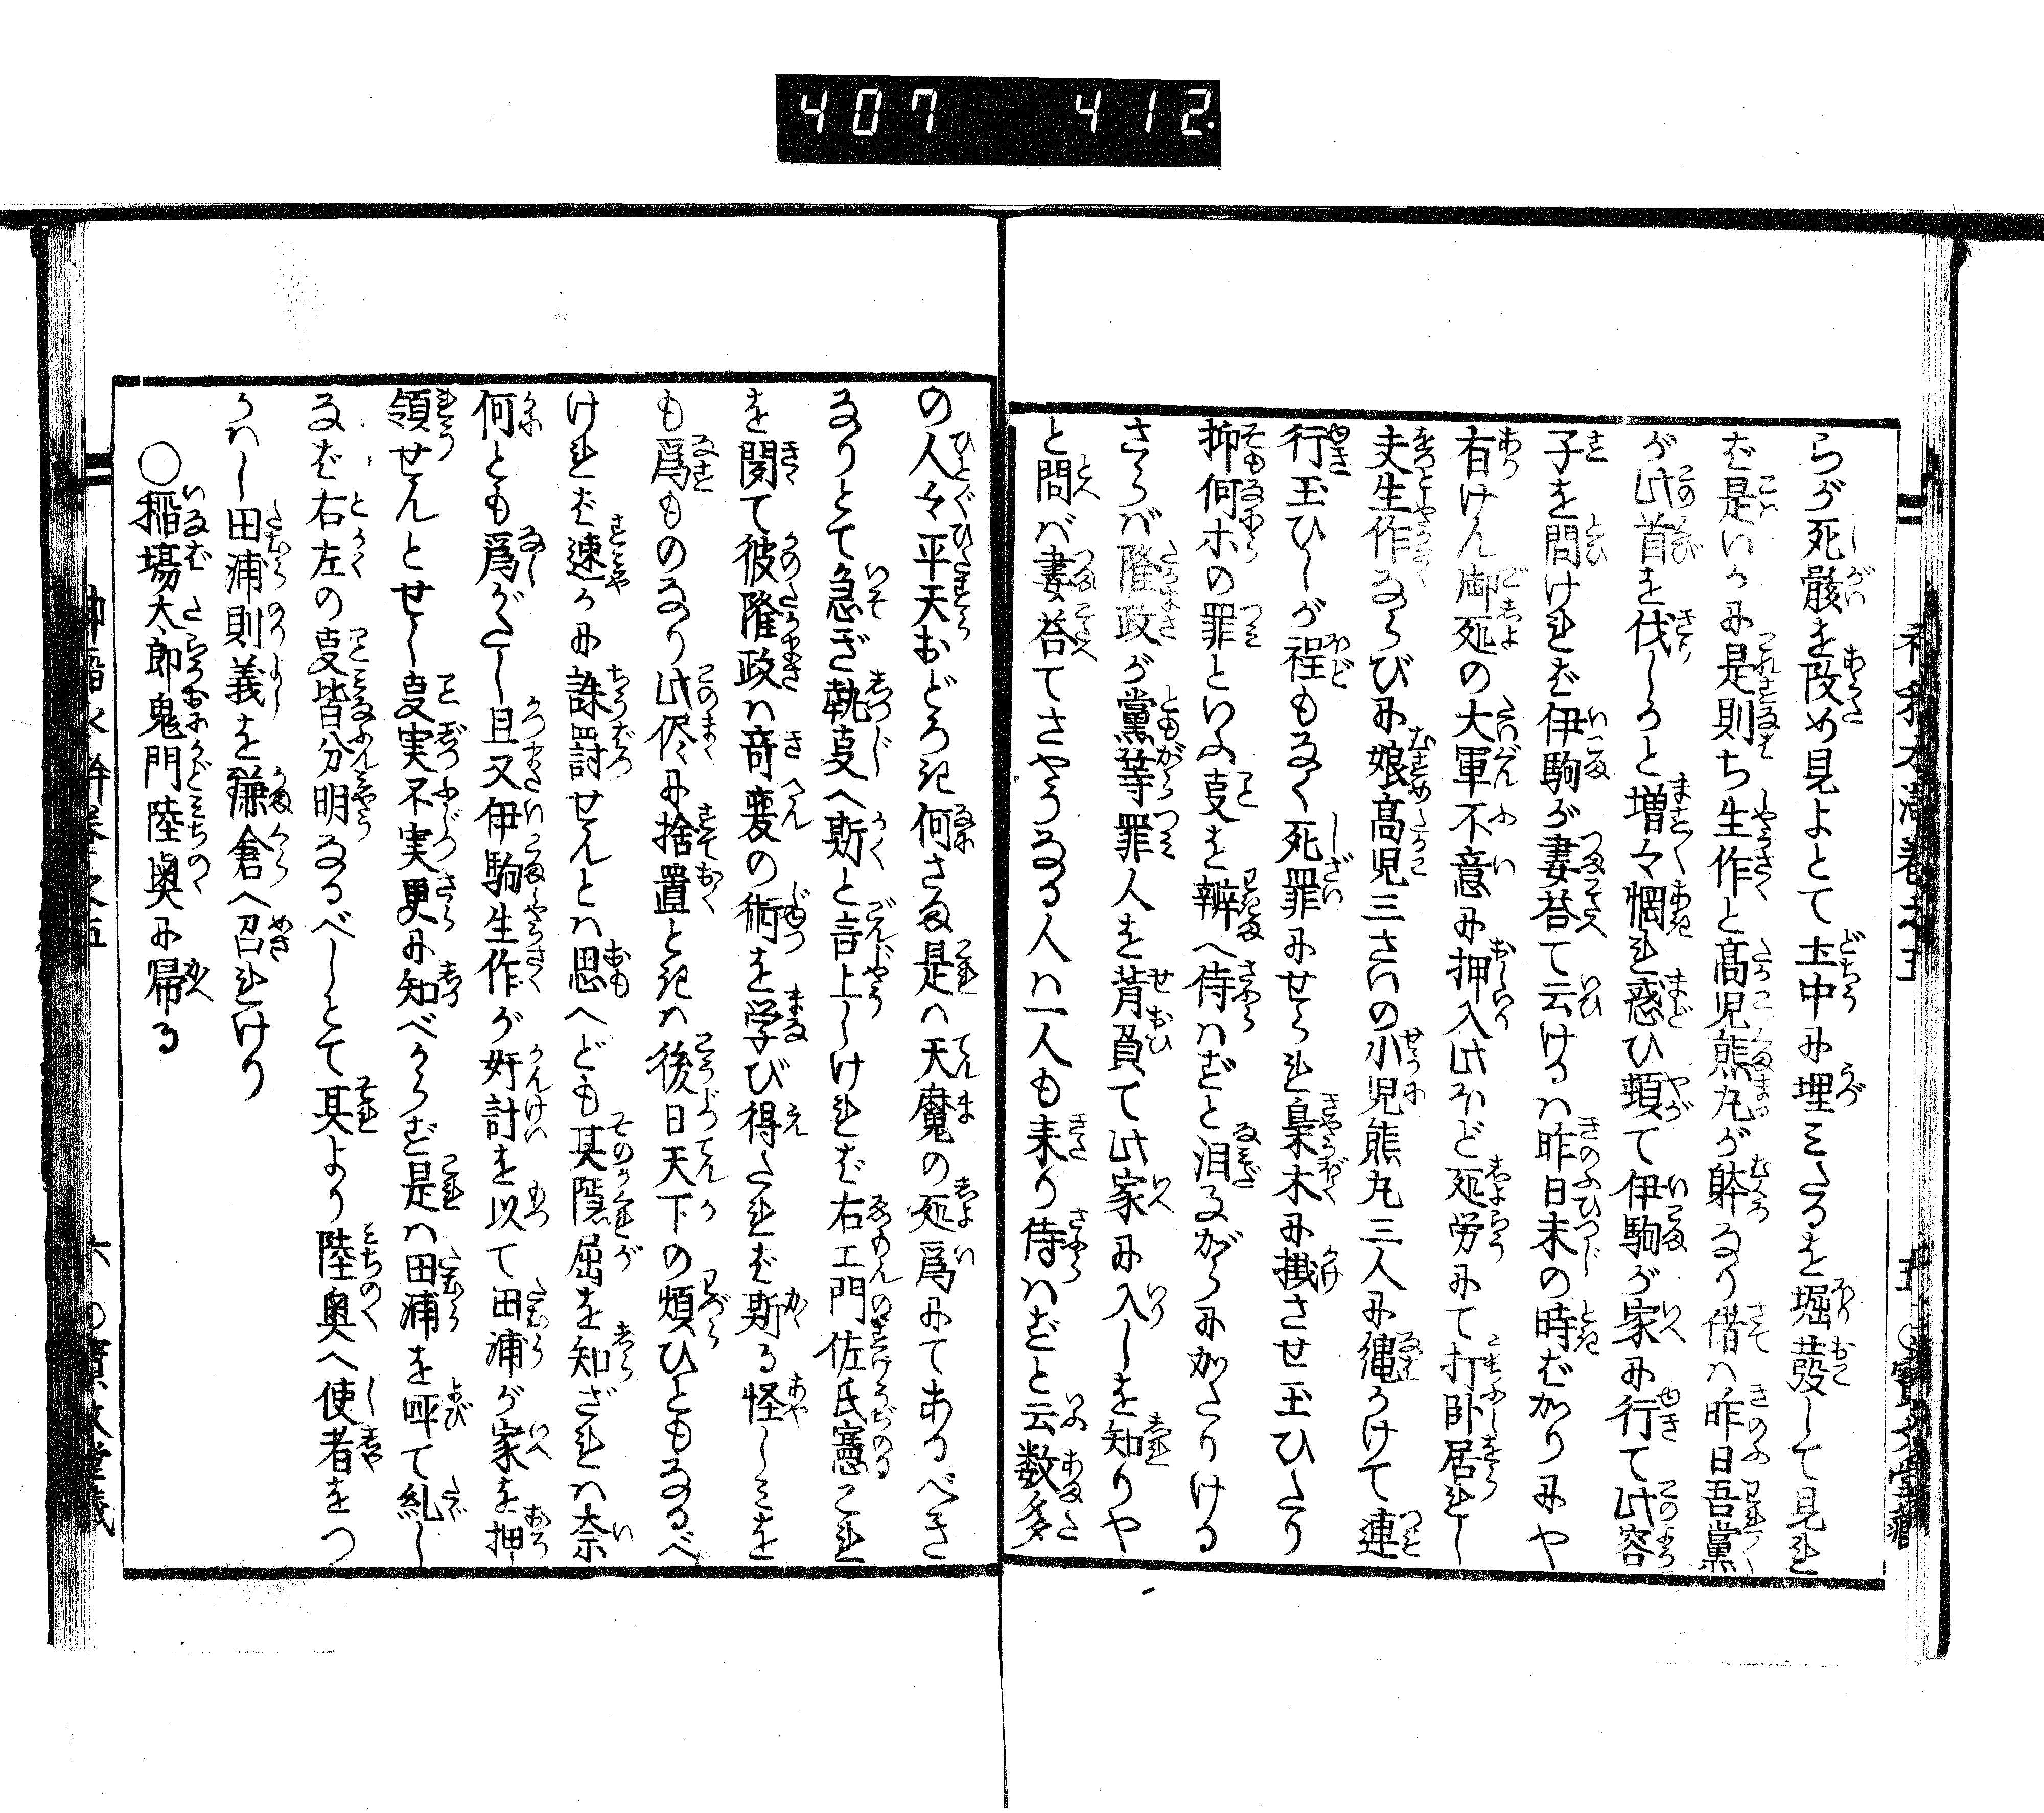 407 412.
らが死骸を改め見よとて土中に埋ミたるを堀発して見れ
ば是いかに是則ち生作と髙児熊丸が躰なり偖ハ昨日吾黨
が此首を伐しかと増々惘れ惑ひ頓て伊駒が家に行て此容
子を問けれど伊駒が妻荅て云けるハ昨日未の時ばかりにや
有けん御処の大軍不意に押入此ほど処労にて打卧居れし
夫生作ならびに娘髙児三さいの小児熊丸三人に縄かけて連
行玉ひしが程もなく死罪にせられ梟木に掛させ玉ひたり
抑何ホの罪といふ事を辨へ侍ハずと泪ながらにかたりける
さらバ隆政が黨等罪人を背負て此家に入しを知りや
と問バ妻荅てさやうなる人ハ一人も来り侍ハずと云数多
の人々平天おどろき何さま是ハ天魔の処為にてあるべき
なりとて急ぎ執事へ斯と言上しけれバ右エ門佐氏憲これ
を聞て彼隆政ハ竒変の術を学び得たれバ斯る怪しミを
も爲ものなり此侭に捨置ときハ後日天下の煩ひともなるべ
けれバ速かに誅罸せんとハ思へども其隠屈を知ざれハ奈
何とも爲がたし且又伊駒生作が奸計を以て田浦が家を押
領せんとせし事実不実更に知べからず是ハ田浦を呼て糺し
なば右左の事皆分明なるべしとて其より陸奥へ使者をつ
かハし田浦則義を鎌倉へ召れけり
○稲塲太郎鬼門陸奥に帰る